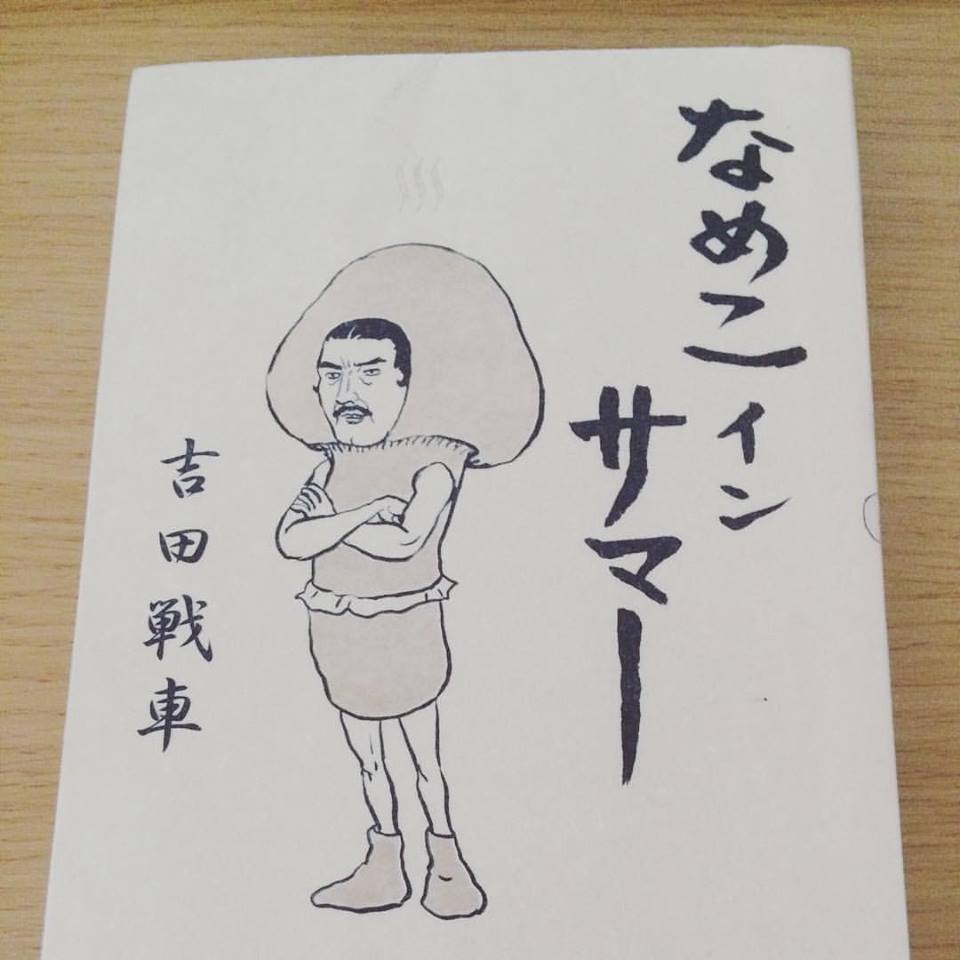 なめこ
イン
サマー
吉田戦車